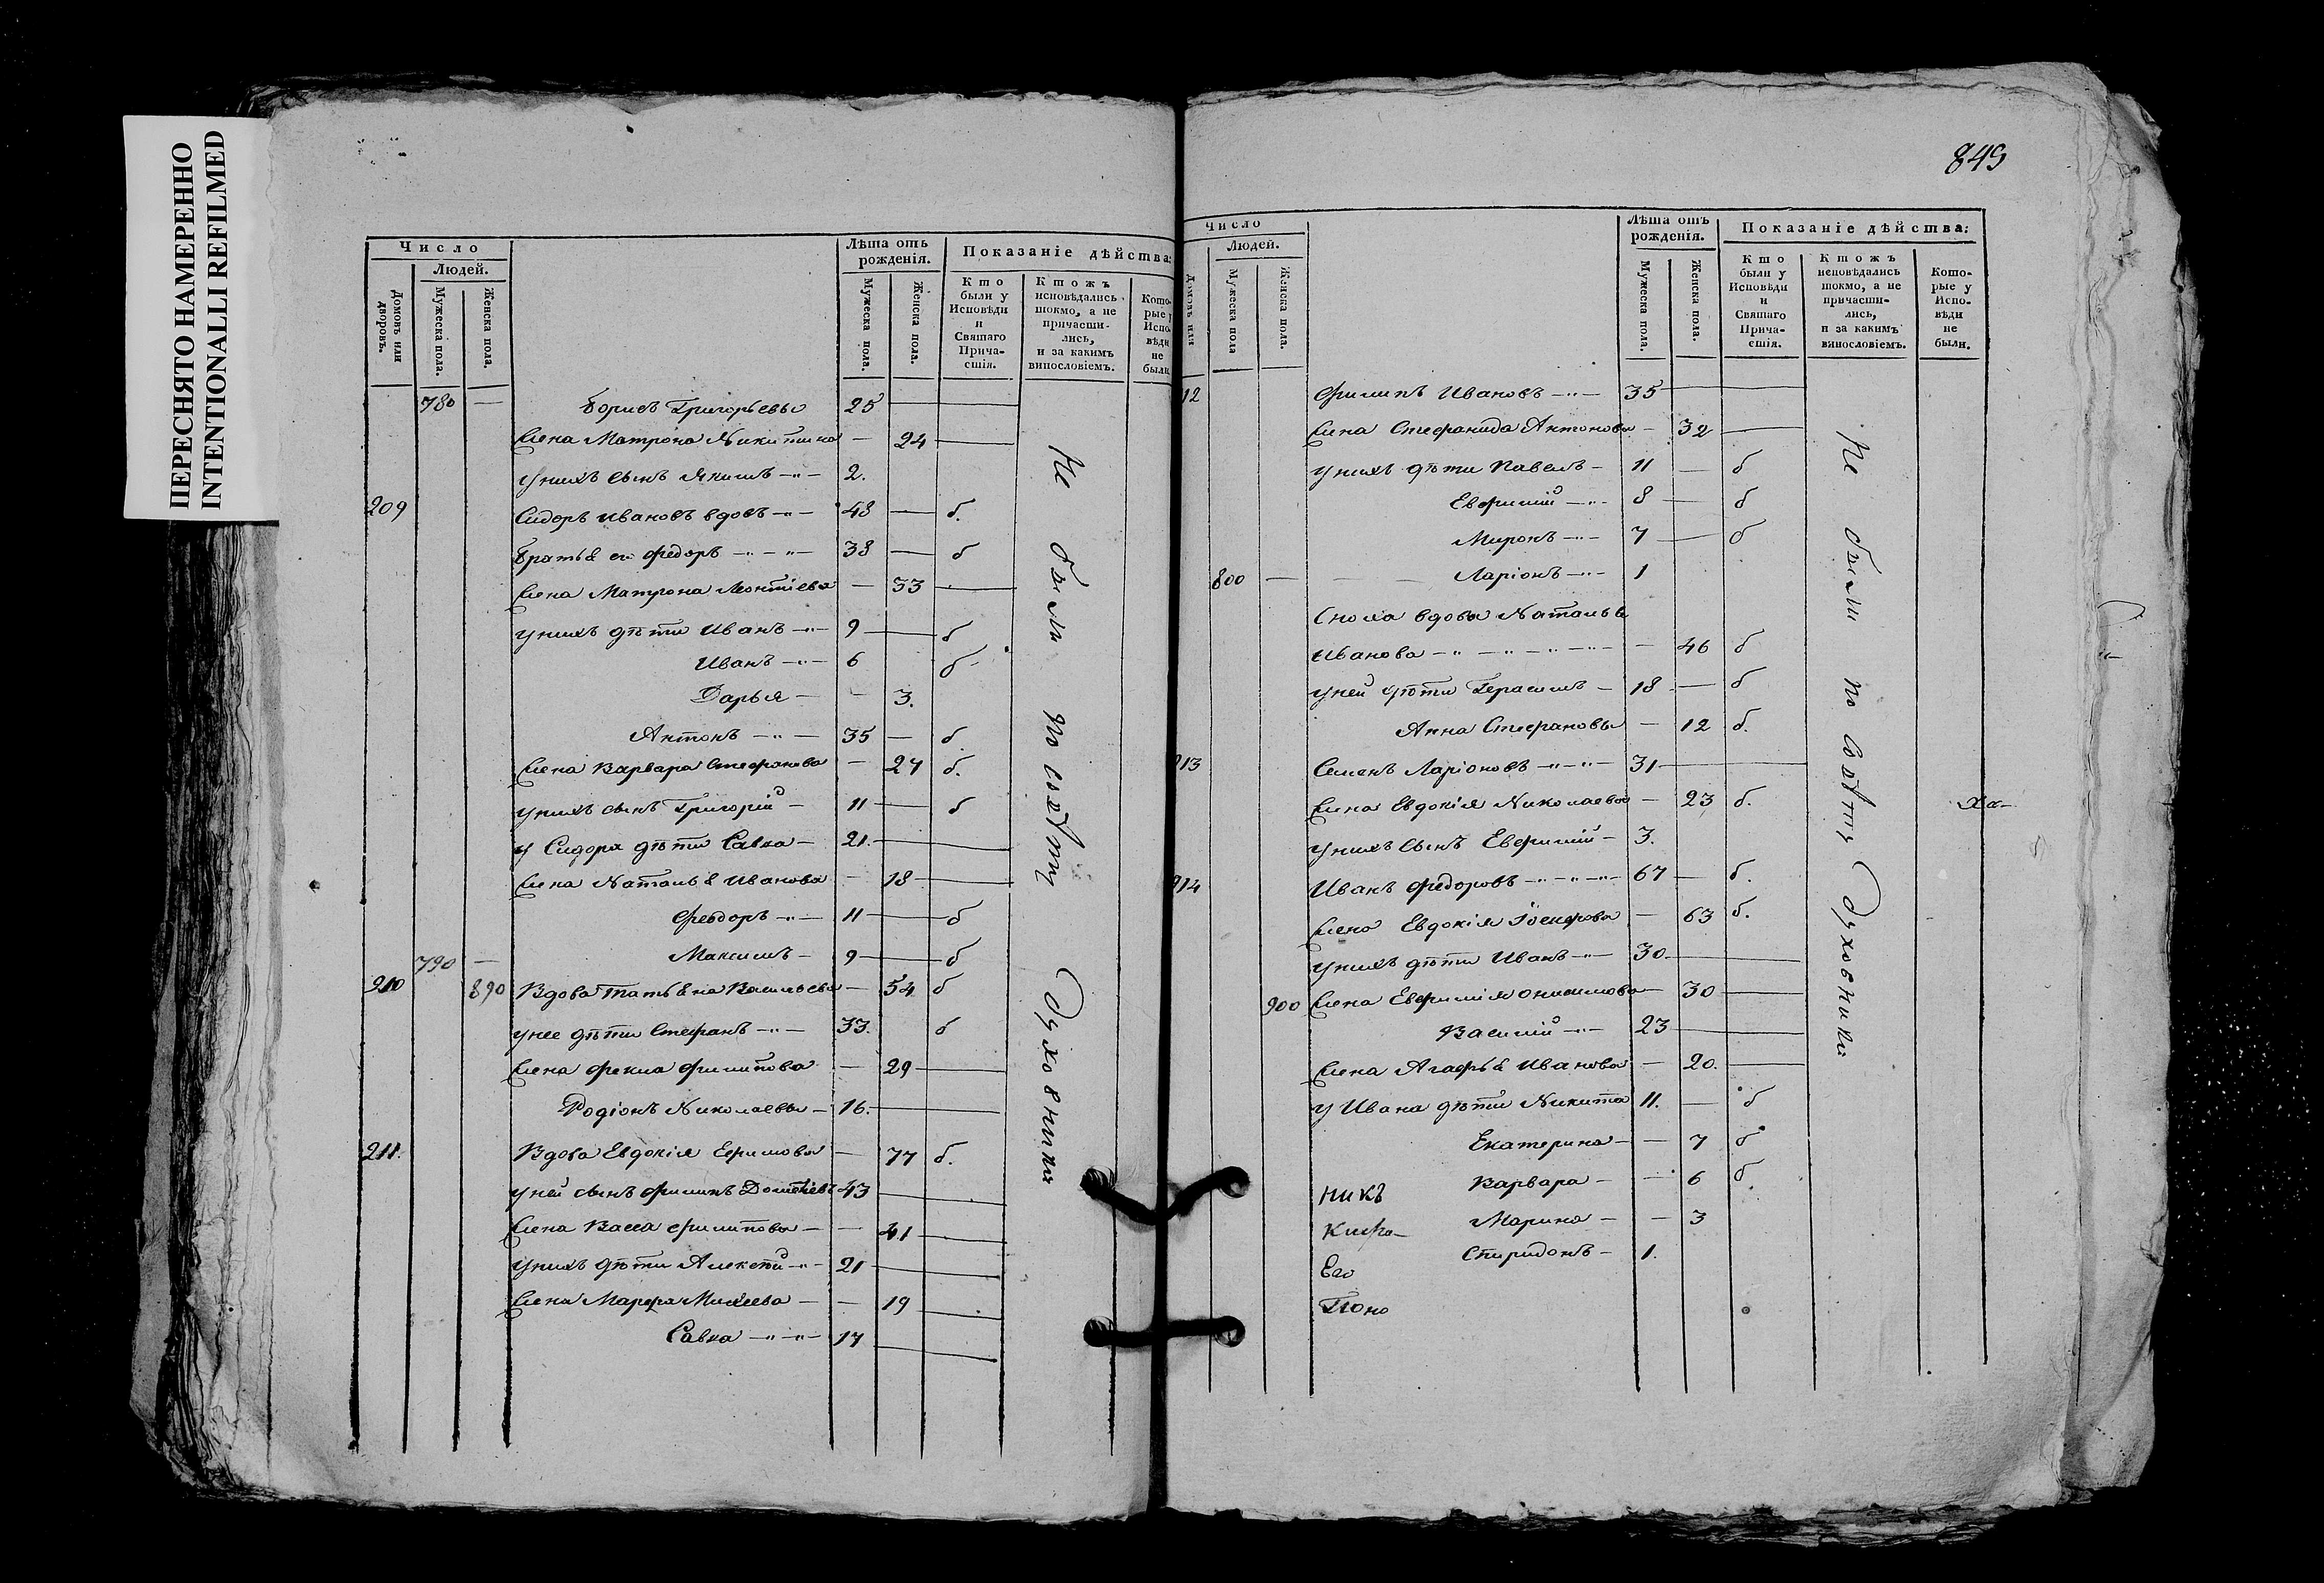 ПЕРЕСНЯТО НАМЕРЕННО
INTENTIONALLI REFILMED
Число
Людей.
Домовъ или дворовъ.
Мужеска пола.
Женска пола.
Лѣта отъ рожденія.
Мужеска пола.
Женска пола.
Показаніе дѣйства:
Кто были у Исповѣди и Святаго Прича-стія.
Ктожъ исповѣдались токмо, а не причасти-лись, и за какимъ винословіемъ.
Кото-рые у Испо-вѣди не были.
780 — Борисъ Григорьевъ 25
Жена Матрона Никитина — 24
у нихъ сынъ Якимъ 2.
209 Сидоръ Ивановъ вдовъ 48 — б.
Братья его Федоръ 38 — б
Жена Матрона Леонтіева — 33
у нихъ дѣти Иванъ 9 — б
Иванъ 6 б
Дарья — 3.
Антонъ 35 — б
Жена Варвара Стефанова — 27 б.
у нихъ сынъ Григорій 11 — б
у Сидора дѣти Савка 21.
Жена Наталья Иванова — 18
Феодоръ 11 — б
790 — Максимъ 9 — б
210 890 Вдова Татьяна Васильева — 54 б
у нее дѣти Стефанъ 33. б
Жена Фекла Филипова — 29
Родіонъ Николаевъ 16.
211. Вдова Евдокія Ефимова — 77 б.
у ней сынъ Филипъ 43
Жена Васса Филипова — 41
у нихъ дѣти Алексѣй 21
Жена Марфа Михеева — 19
Савка 17
Не были по совѣту Духовника
849
Число
Людей.
Домовъ или
Мужеска пола
Женска пола.
Лѣта отъ рожденія.
Мужеска пола.
Женска пола.
Показаніе дѣйства:
Кто были у Исповѣди и Святаго Прича-стія.
Ктожъ исповѣдались токмо, а не причасти-лись, и за какимъ винословіемъ.
Кото-рые у Испо-вѣди не были.
12 Филипъ Ивановъ 35
Жена Стефанида Антонова — 32
у нихъ дѣти Павелъ 11 — б
Евфимій 8 — б
Миронъ 7 — б
800 — Ларіонъ 1
Сноха вдова Наталья
Иванова — 46 б
у ней дѣти Герасимъ 18 — б
Анна Стефановы — 12 б.
213 Семенъ Ларіоновъ 31
Жена Евдокія Николаева — 23 б.
у нихъ сынъ Евфимій 3.
214 Иванъ Федоровъ 67 — б.
Жена Евдокія — 63 б.
у нихъ дѣти Иванъ 30.
900 Жена Евфимія Онисимова — 30
Василій 23
Жена Агафья Иванова — 20.
у Ивана дѣти Никита 11. — б
Екатерина — 7 б
Варвара — 6 б
Марина — 3
Спиридонъ 1.
Не были по совѣту Духовника
никъ
Его